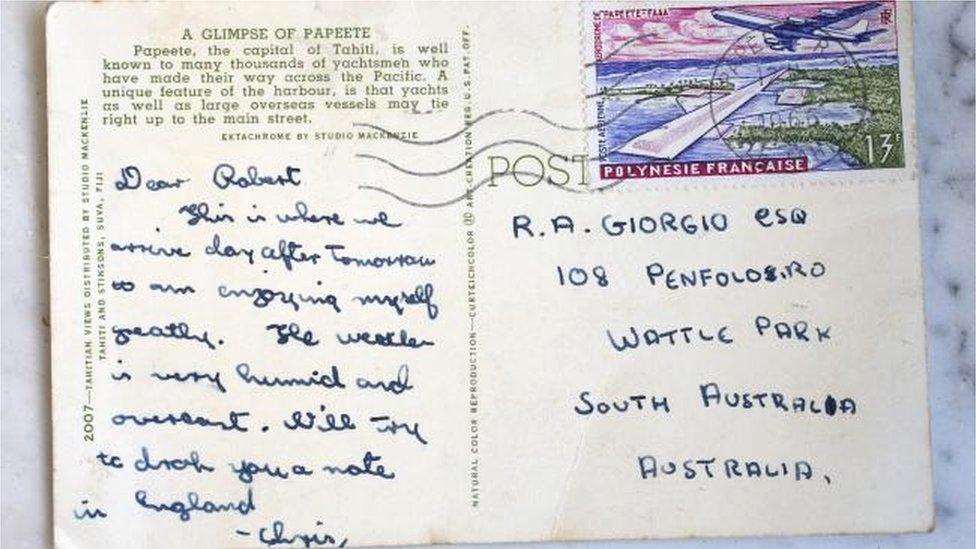 A GLIMPSE OF PAPEETE
Papeete, the capital of Tahiti, is well
known to many thousands of yachtsmen who
have made their way across the Pacific. A
unique feature of the harbour, is that yachts
as well as large overseas vessels may tie
right up to the main street.
EKTACHROME BY STUDIO MACKENZIE
2007—TAHITIAN VIEWS DISTRIBUTED BY STUDIO MACKENZIE
TAHITI AND STINSONS, SUVA, FIJI
Dear Robert
This is where we
arrive day after tomorrow
am enjoying myself
greatly. The weather
is very humid and
overcast. Will try
to drop you a note
in England
- Chris,
NATURAL COLOR REPRODUCTION—CURTEICHCOLOR ® ART CREATION REG. U.S. PAT. OFF.
POST
AERODROME DE PAPEETE-FAAA
RF
POSTE AERIENNE
13F
POLYNESIE FRANÇAISE
R.A. GIORGIO ESQ
108 PENFOLDS.RD
WATTLE PARK
SOUTH AUSTRALIA
AUSTRALIA,